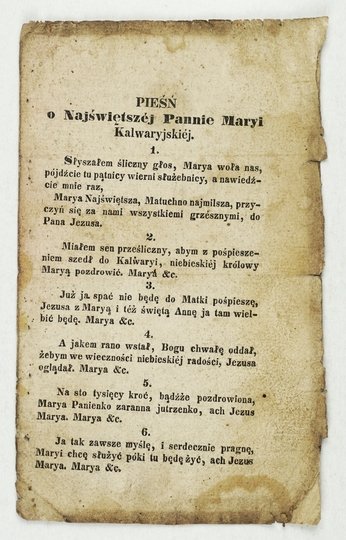 PIEŚŃ
o Najświętszéj Pannie Maryi
Kalwaryjskiéj.
1.
Słyszałem śliczny głos, Marya woła nas,
pójdźcie tu pątnicy wierni służebnicy, a nawiedź-
cie mnie raz,
Marya Najświętsza, Matuchno najmilsza, przy-
czyń się za nami wszystkiemi grzésznymi, do
Pana Jezusa.
2.
Miałem sen prześliczny, abym z pośpiesze-
niem szedł do Kalwaryi, niebieskiéj królowy
Maryą pozdrowić. Marya &c.
3.
Już ja spać nie będę do Matki pośpieszę,
Jezusa z Maryą i téż świętą Annę ja tam wiel-
bić będę. Marya &c.
4.
A jakem rano wstał, Bogu chwałę oddał,
żebym we wieczności niebieskiéj radości, Jezusa
oglądał. Marya &c.
5.
Na sto tysięcy kroć, bądźże pozdrowiona,
Marya Panienko zaranna jutrzenko, ach Jezus
Marya. Marya &c.
6.
Ja tak zawsze myślę, i serdecznie pragnę,
Maryi chcę służyć póki tu będę żyć, ach Jezus
Marya. Marya &c.